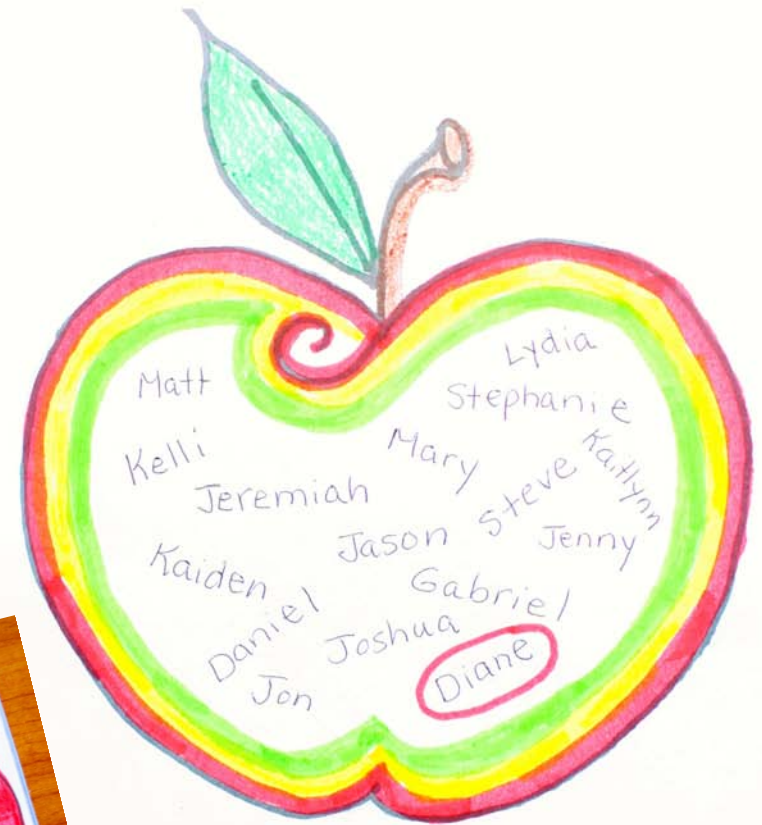 Lydia
Matt
Stephanie
Kelli
Mary
Kaitlynn
Jeremiah
Steve
Jason
Jenny
Kaiden
Gabriel
Daniel
Joshua
Diane
Jon